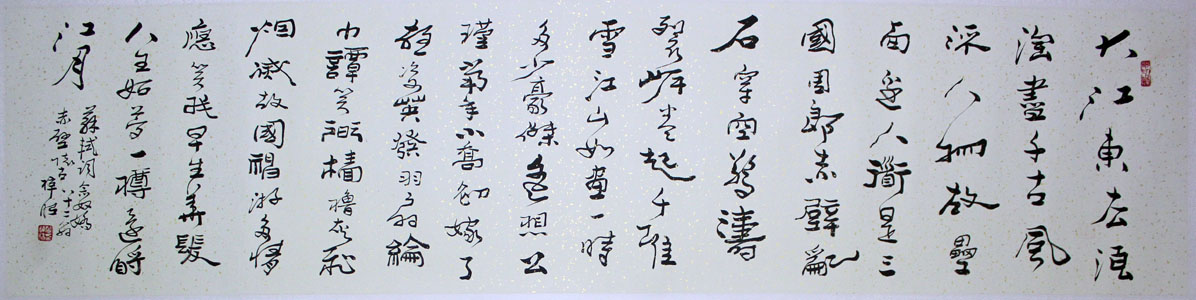 大江東去浪
淘盡千古風
流人物故壘
西邊人道是三
國周郎赤壁亂
石穿空驚濤
裂岸卷起千堆
雪江山如畫一時
多少豪傑遙想公
瑾當年小喬初嫁了
雄姿英發羽扇綸
巾譚笑間檣櫓灰飛
烟滅故國神游多情
應笑我早生華髮
人生如夢一樽還酹
江月
蘇軾詞念奴嬌
赤壁懷古八十二翁